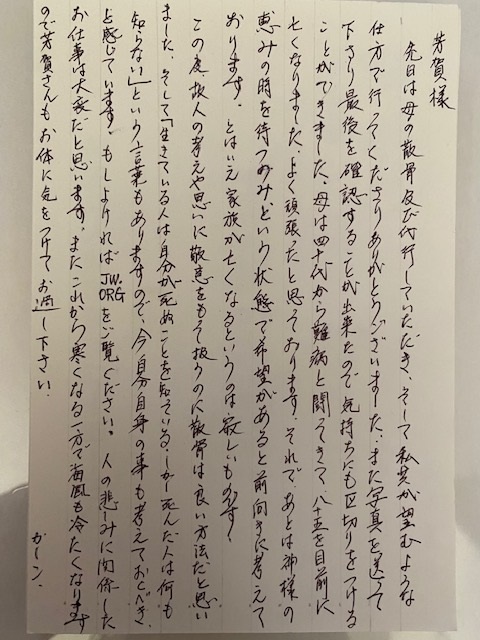 芳賀様
先日は母の散骨を代行していただき、そして私共が望むような
仕方で行ってくださりありがとうございました。また写真を送って
下さり最後を確認することが出来たので気持ちにも区切りをつける
ことができました。母は四十代から難病と闘ってきて、八十五を目前に
亡くなりました。よく頑張ったと思っております。それで、あとは神様の
恵みの時を待つのみ、という状態で希望があると前向きに考えて
おります。とはいえ家族が亡くなるというのは寂しいものです!
この度故人の考えや思いに敬意をもって扱うのに散骨は良い方法だと思い
ました。そして「生きている人は自分が死ぬことを知っている しかし死んだ人は何も
知らない」という言葉もありますので、今自分自身の事も考えておくべき
と感じています。もしよければJW.ORGをご覧ください。人の悲しみに関係した
お仕事は大変だと思います。またこれから寒くなる一方で海風も冷たくなります
ので芳賀さんもお体に気をつけてお過し下さい.